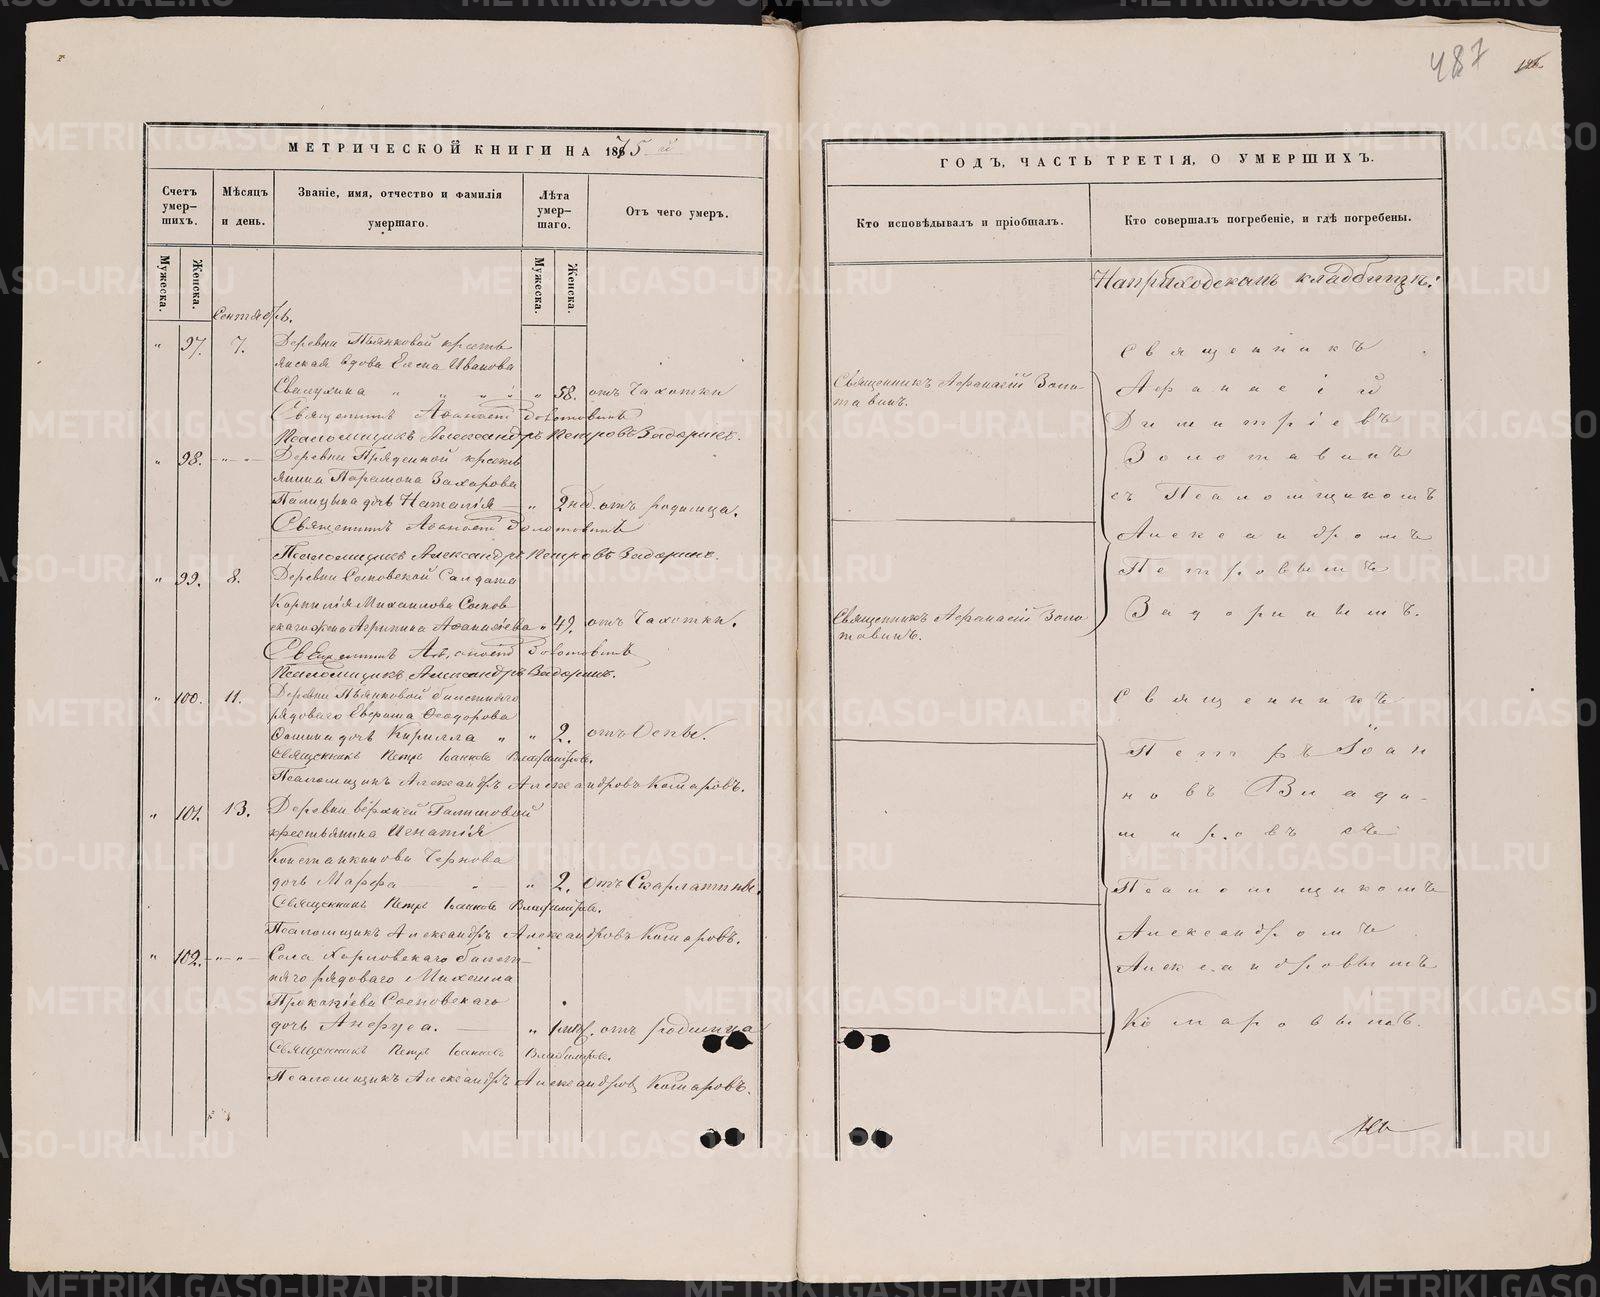 487
МЕТРИЧЕСКОЙ КНИГИ НА 1875 й
Счетъ умер-шихъ.
Мѣсяцъ и день.
Званіе, имя, отчество и фамилія умершаго.
Лѣта умер-шаго.
Отъ чего умеръ.
Мужеска.
Женска.
Мужеска.
Женска.
Сентябрь.
" 97. 7. Деревни Пьянковой кресть
янская вдова Елена Иванова
" 58. отъ Чахотки
Священникъ Афанасій Золотавинъ
Псаломщикъ Александръ Петровъ Задоринъ.
" 98. " " Деревни Пряденной кресть
янина Парамона Захарова
Палицына дочь Наталія " 2 нед. отъ родимца.
Священникъ Афанасій Золотавинъ
Псаломщикъ Александръ Петровъ Задоринъ.
" 99. 8. Деревни Сосновской Солдата
Корнилія Михаилова Соснов
скаго жена Агрипина Афанасіева " 49. отъ Чахотки.
Священникъ Афанасій Золотавинъ
Псаломщикъ Александръ Задоринъ.
" 100. 11. Деревни Пьянковой билетнаго
рядоваго Феодорова
дочь Кирилла " " 2. отъ Оспы.
Священникъ Петръ Іоанновъ Владиміровъ.
Псаломщикъ Александръ Александровъ Комаровъ.
" 101. 13. Деревни верхней
крестьянина Игнатія
Константинова Чернова
дочь Марфа " 2. отъ Скарлатины.
Священникъ Петръ Іоанновъ Владиміровъ.
Псаломщикъ Александръ Александровъ Комаровъ.
" 102. " " Села Харловскаго билет
наго рядоваго Михаила
Прокопіева Сосновскаго
дочь " 1 мѣс. отъ родимца
Священникъ Петръ Іоанновъ Владиміровъ.
Псаломщикъ Александръ Александровъ Комаровъ.
ГОДЪ, ЧАСТЬ ТРЕТІЯ, О УМЕРШИХЪ.
Кто исповѣдывалъ и пріобщалъ.
Кто совершалъ погребеніе, и гдѣ погребены.
На приходскомъ кладбищѣ:
Священникъ Афанасій Золо
тавинъ.
Священникъ Афанасій Золо
тавинъ.
Священникъ
Афанасій
Димитріевъ
Золотавинъ
съ Псаломщикомъ
Александромъ
Петровымъ
Задоринымъ.
Священникъ
Петръ Іоан
новъ Влади-
міровъ съ
Псаломщикомъ
Александромъ
Александровымъ
Комаровымъ.
METRIKI.GASO-URAL.RU